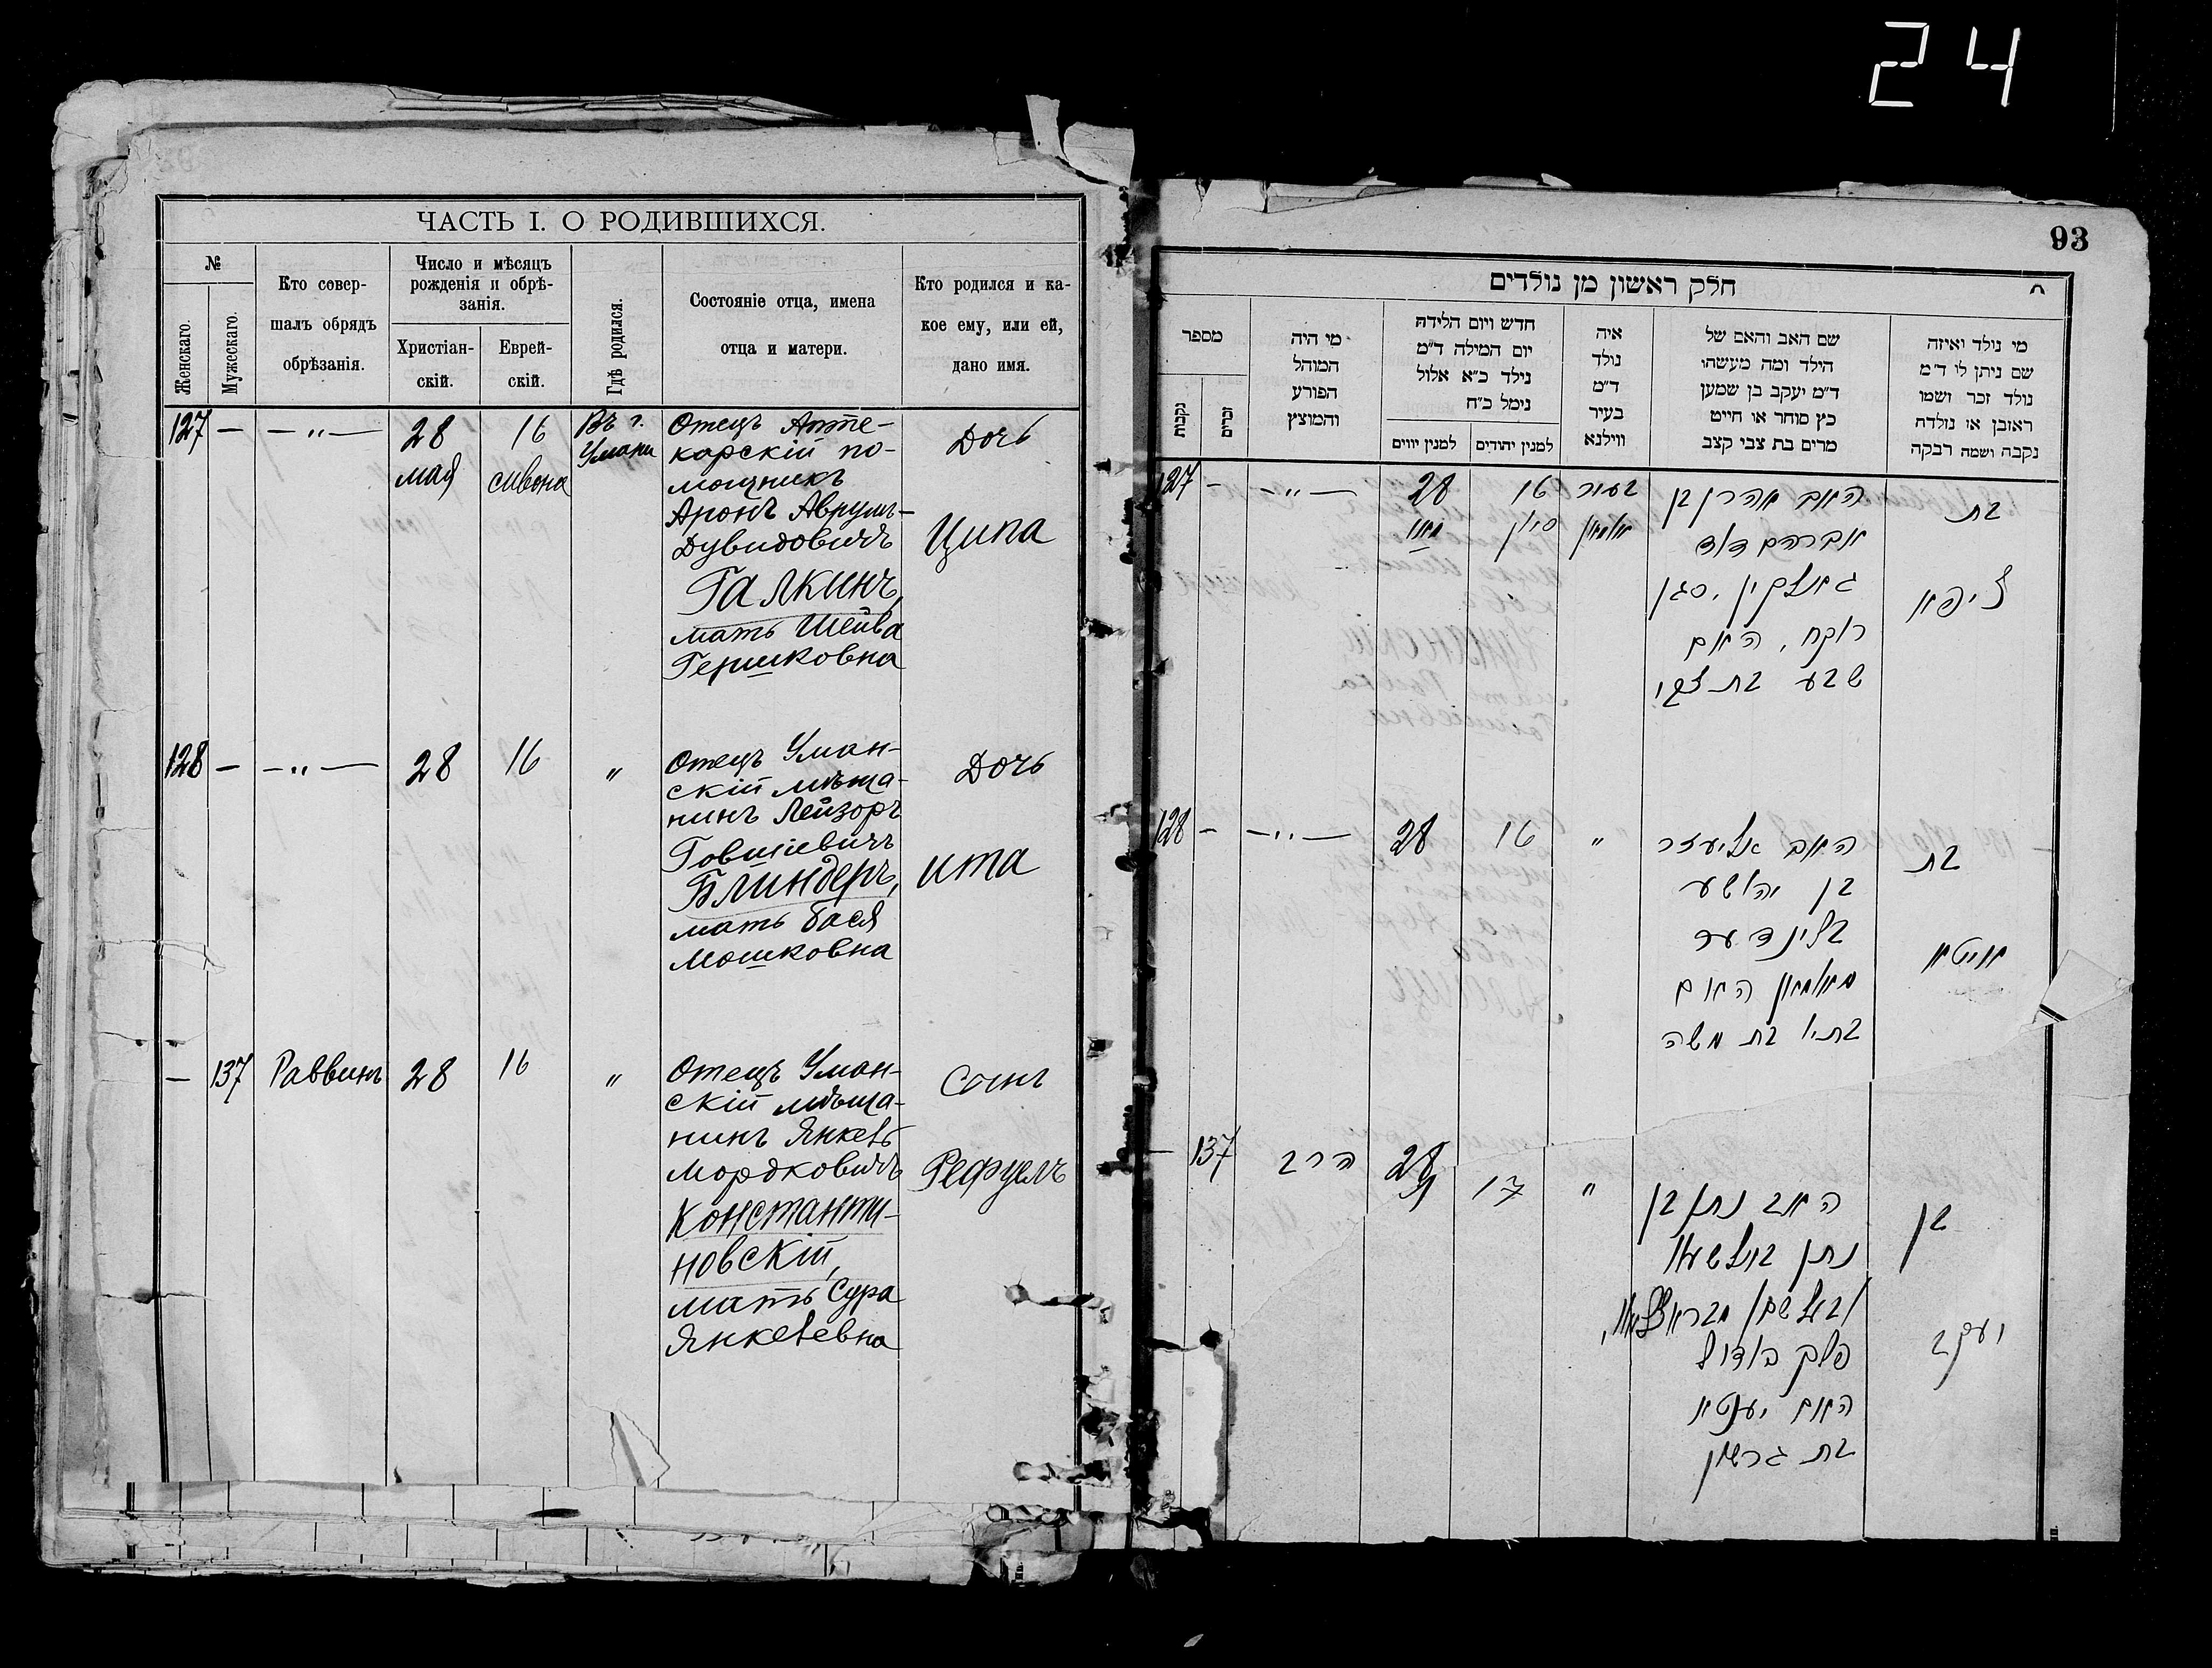 24
ЧАСТЬ I. О РОДИВШИХСЯ.
№
Женскаго.
Мужескаго.
Кто совер-
шалъ обрядъ
обрѣзанія.
Число и мѣсяцъ
рожденія и обрѣ-
занія.
Христіан-
скій.
Еврей-
скій.
Гдѣ родился.
Состояніе отца, имена
отца и матери.
Кто родился и ка-
кое ему, или ей,
дано имя.
127 — — „ — 28 16 Въ г.
мая сивона Умани
Отецъ Апте-
карскій по-
мощникъ
Аронъ Аврумъ-
Дувидовичъ
Галкинъ,
мать Шейва
Гершковна
Дочь
Ципа
128 — — „ — 28 16 „
Отецъ Уман-
скій мѣща-
нинъ Лейзоръ
Говшіевичъ
Блиндеръ,
мать Бася
Мошковна
Дочь
Ита
— 137 Раввинъ 28 16 „
Отецъ Уман-
скій мѣща-
нинъ Янкевъ
Мордковичъ
Константи-
новскій,
мать Сура
Янкевевна
Сынъ
Рефуелъ
93
חלק ראשון מן נולדים
מספר
נקבות
זכרים
מי היה
המוהל
הפורע
והמוצץ
חדש ויום הלידה
יום המילה ד״מ
נילד כ״א אלול
נימל כ״ח
למנין יווים
למנין יהודים
איה
נולד
ד״מ
בעיר
ווילנא
שם האב והאם של
הילד ומה מעשהו
ד״מ יעקב בן שמען
כץ סוחר או חייט
מרים בת צבי קצב
מי נולד ואיזה
שם ניתן לו ד״מ
נולד זכר ושמו
ראובן או נולדה
נקבה ושמה רבקה
127 — — „ — 28 16 בעיר
מאי סיון אומאן
האב אהרן בן
אברהם דוד
גאלקין, סגן
רוקח, האם
שבע בת צבי
בת
ציפא
128 — — „ — 28 16 „
האב אליעזר
בן יהושע
בלינדער
מאומאן האם
בתי׳ בת משה
בת
איטא
— 137 הרב 28 17 „
האב נתן בן
נתן
האם יענטא
בת גרשון
בן
יעקב